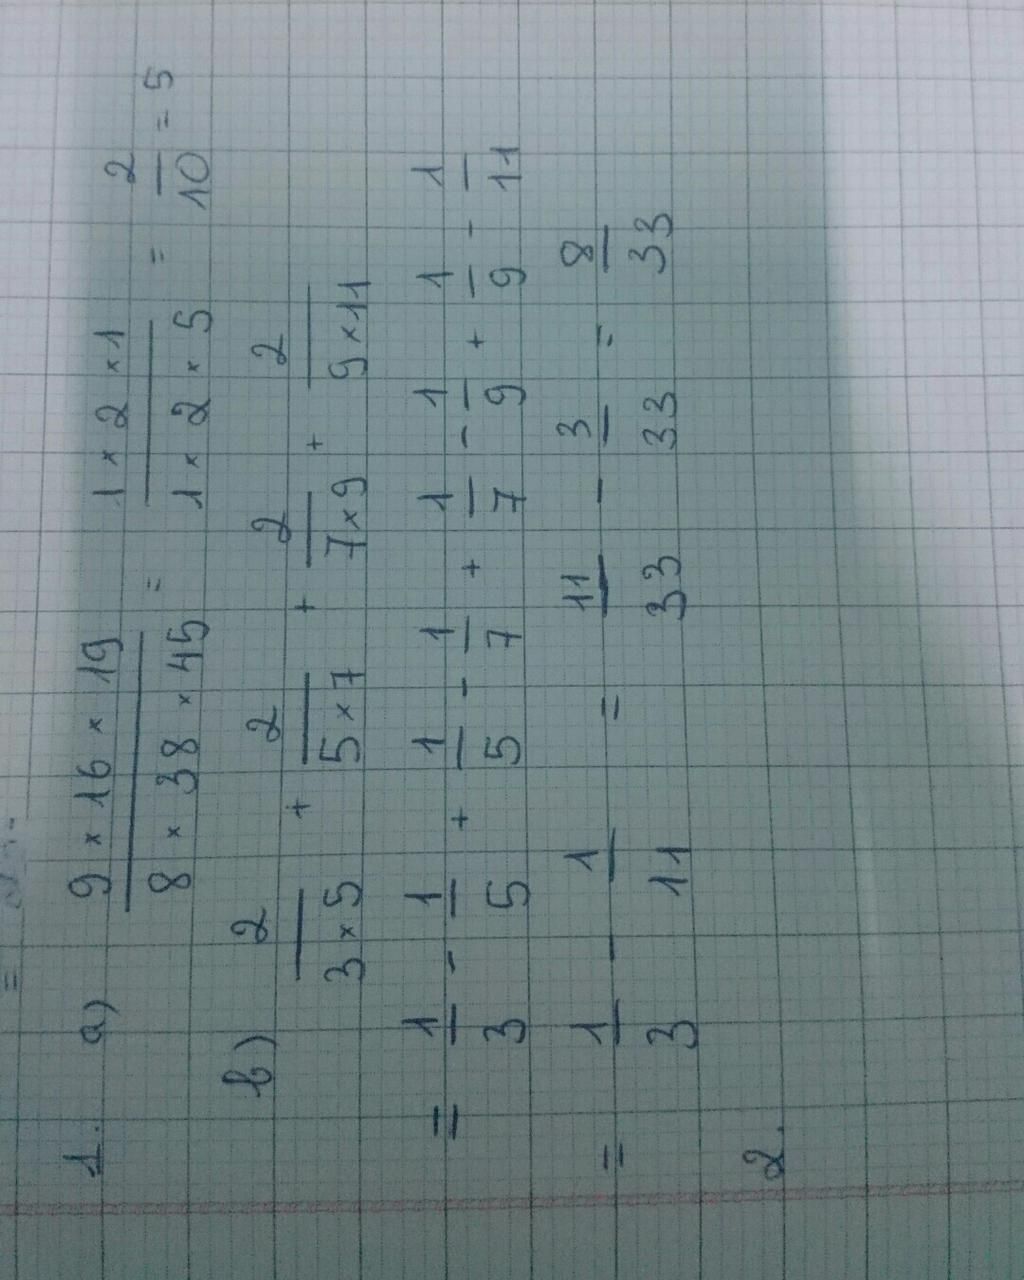 1. a) 9 × 16 × 19 / 8 × 38 × 45 = 1 × 2 × 1 / 1 × 2 × 5 = 2/10 = 5
b) 2 / 3 × 5 + 2 / 5 × 7 + 2 / 7 × 9 + 2 / 9 × 11
= 1/3 - 1/5 + 1/5 - 1/7 + 1/7 - 1/9 + 1/9 - 1/11
= 1/3 - 1/11 = 11/33 - 3/33 = 8/33
2.